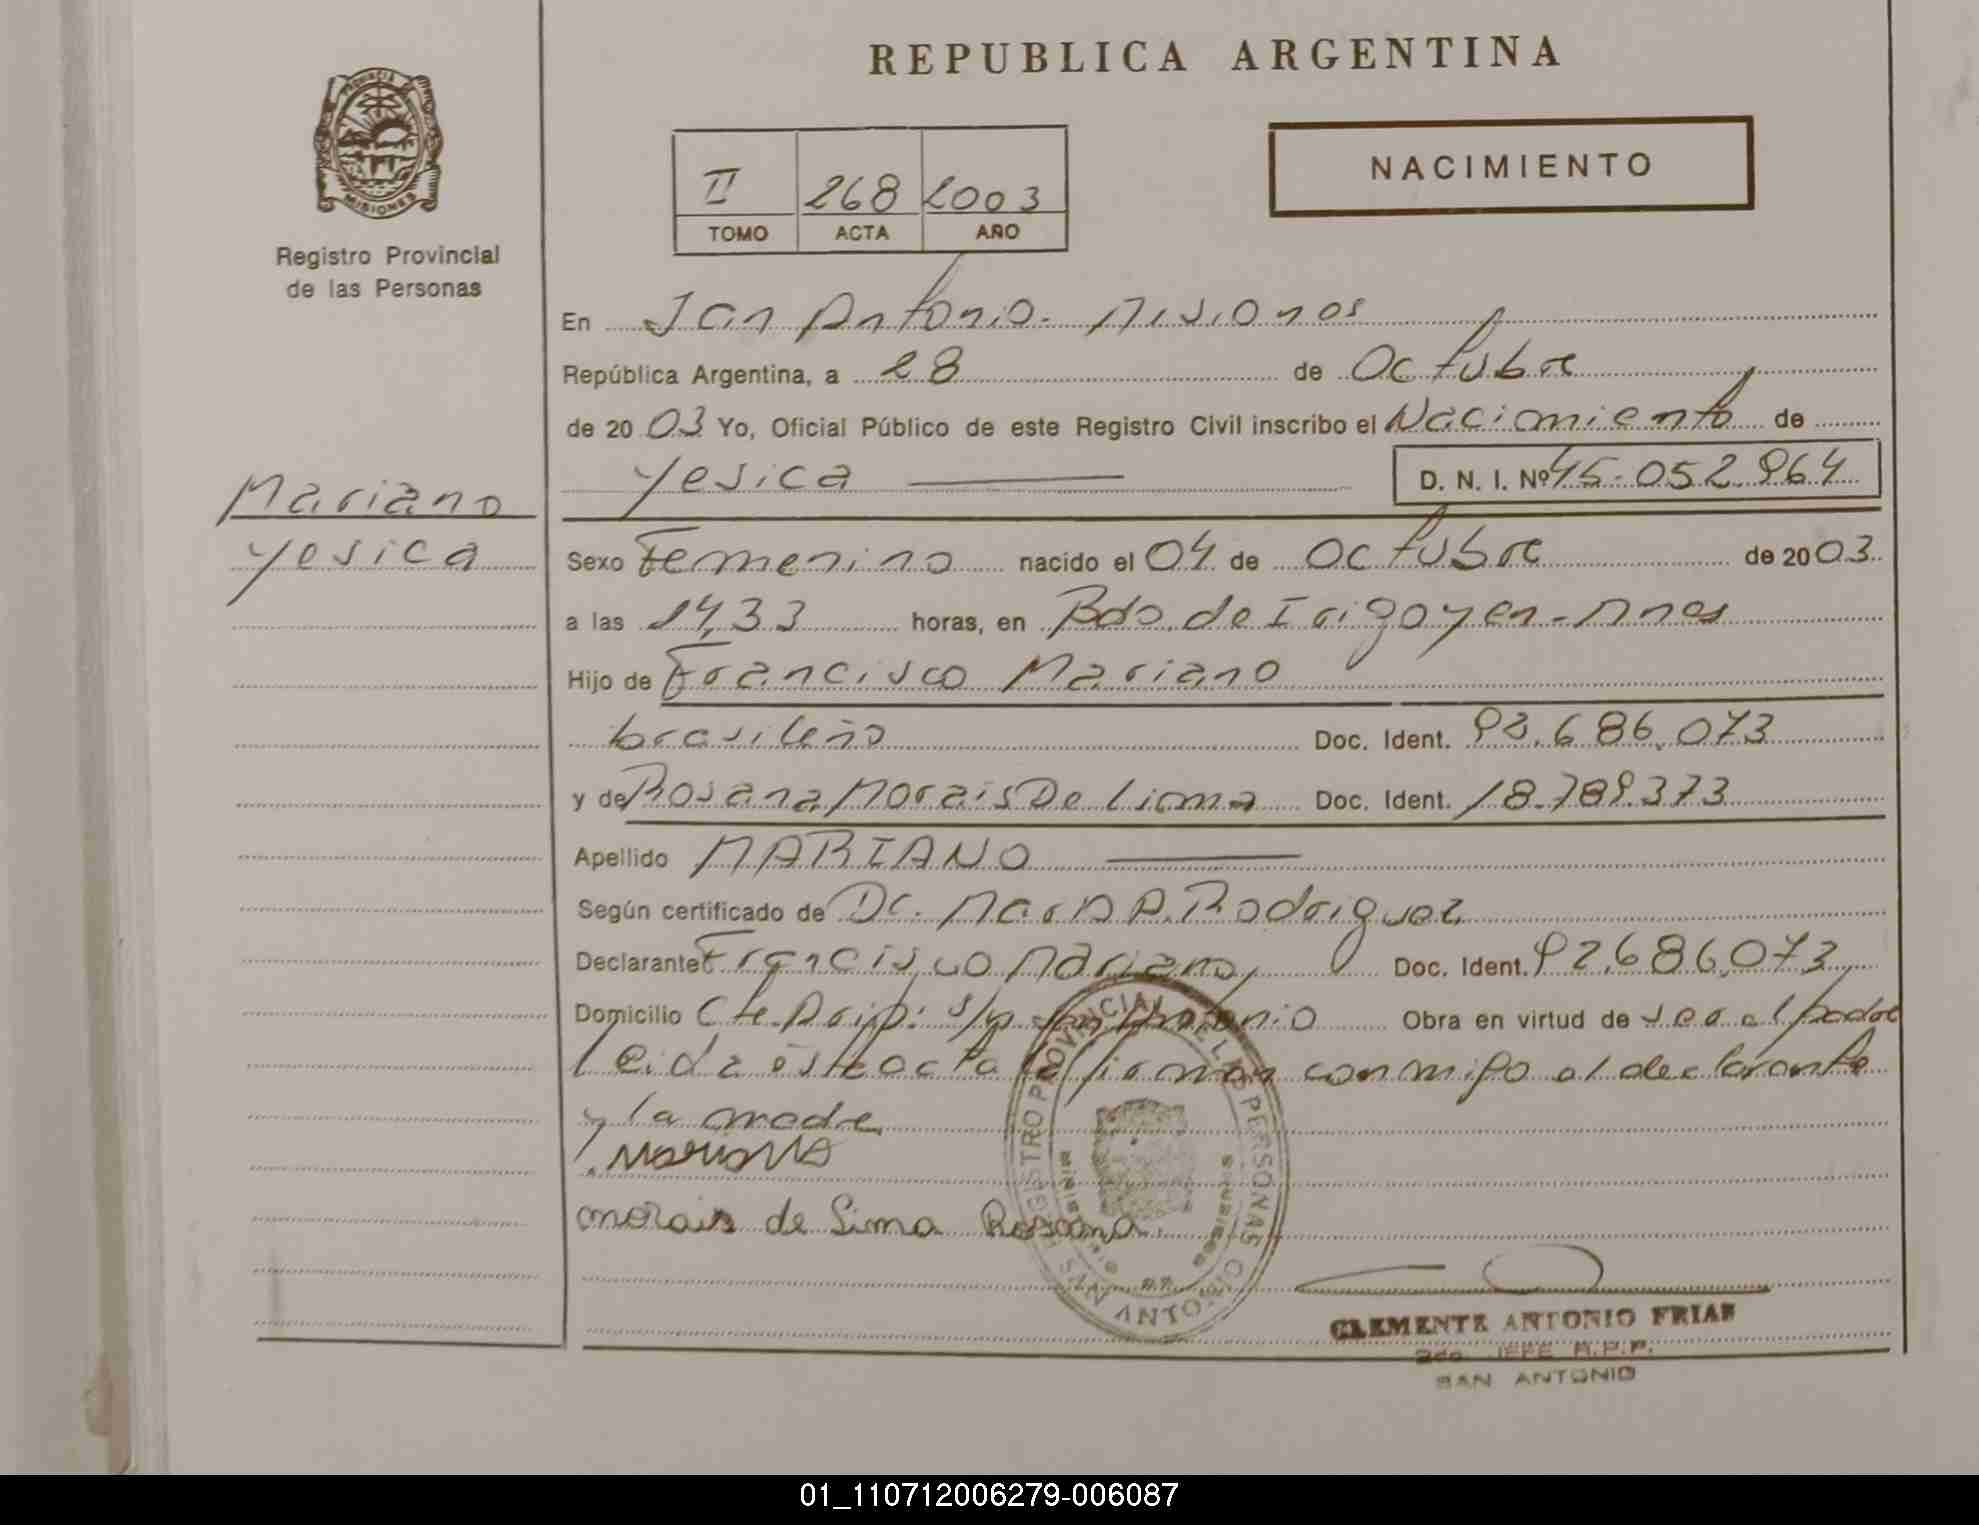 REPUBLICA ARGENTINA
PROVINCIA
MISIONES
Registro Provincial
de las Personas
II 268 2003
TOMO ACTA AÑO
NACIMIENTO
En San Antonio - Misiones
República Argentina, a 28 de Octubre
de 2003 Yo, Oficial Público de este Registro Civil inscribo el Nacimiento de
Yesica D. N. I. Nº 45.052.964
Mariano
Yesica
Sexo Femenino nacido el 04 de Octubre de 2003
a las 14,33 horas, en Bdo. de Irigoyen - Mnes
Hijo de Francisco Mariano
brasileño Doc. Ident. 92.686.073
y de Rosana Morais De Lima Doc. Ident. 18.789.373
Apellido MARIANO
Según certificado de Dr. Mario A. Rodriguez
Declarante Francisco Mariano Doc. Ident. 92.686.073
Domicilio Cte. s/n San Antonio Obra en virtud de ser el padre
leida esta acta la firman conmigo el declarante
y la madre
Mariano
morais de Lima Rosana
REGISTRO PROVINCIAL DE LAS PERSONAS
CLEMENTE ANTONIO FRIAS
2do. JEFE R.P.P.
SAN ANTONIO
01_110712006279-006087